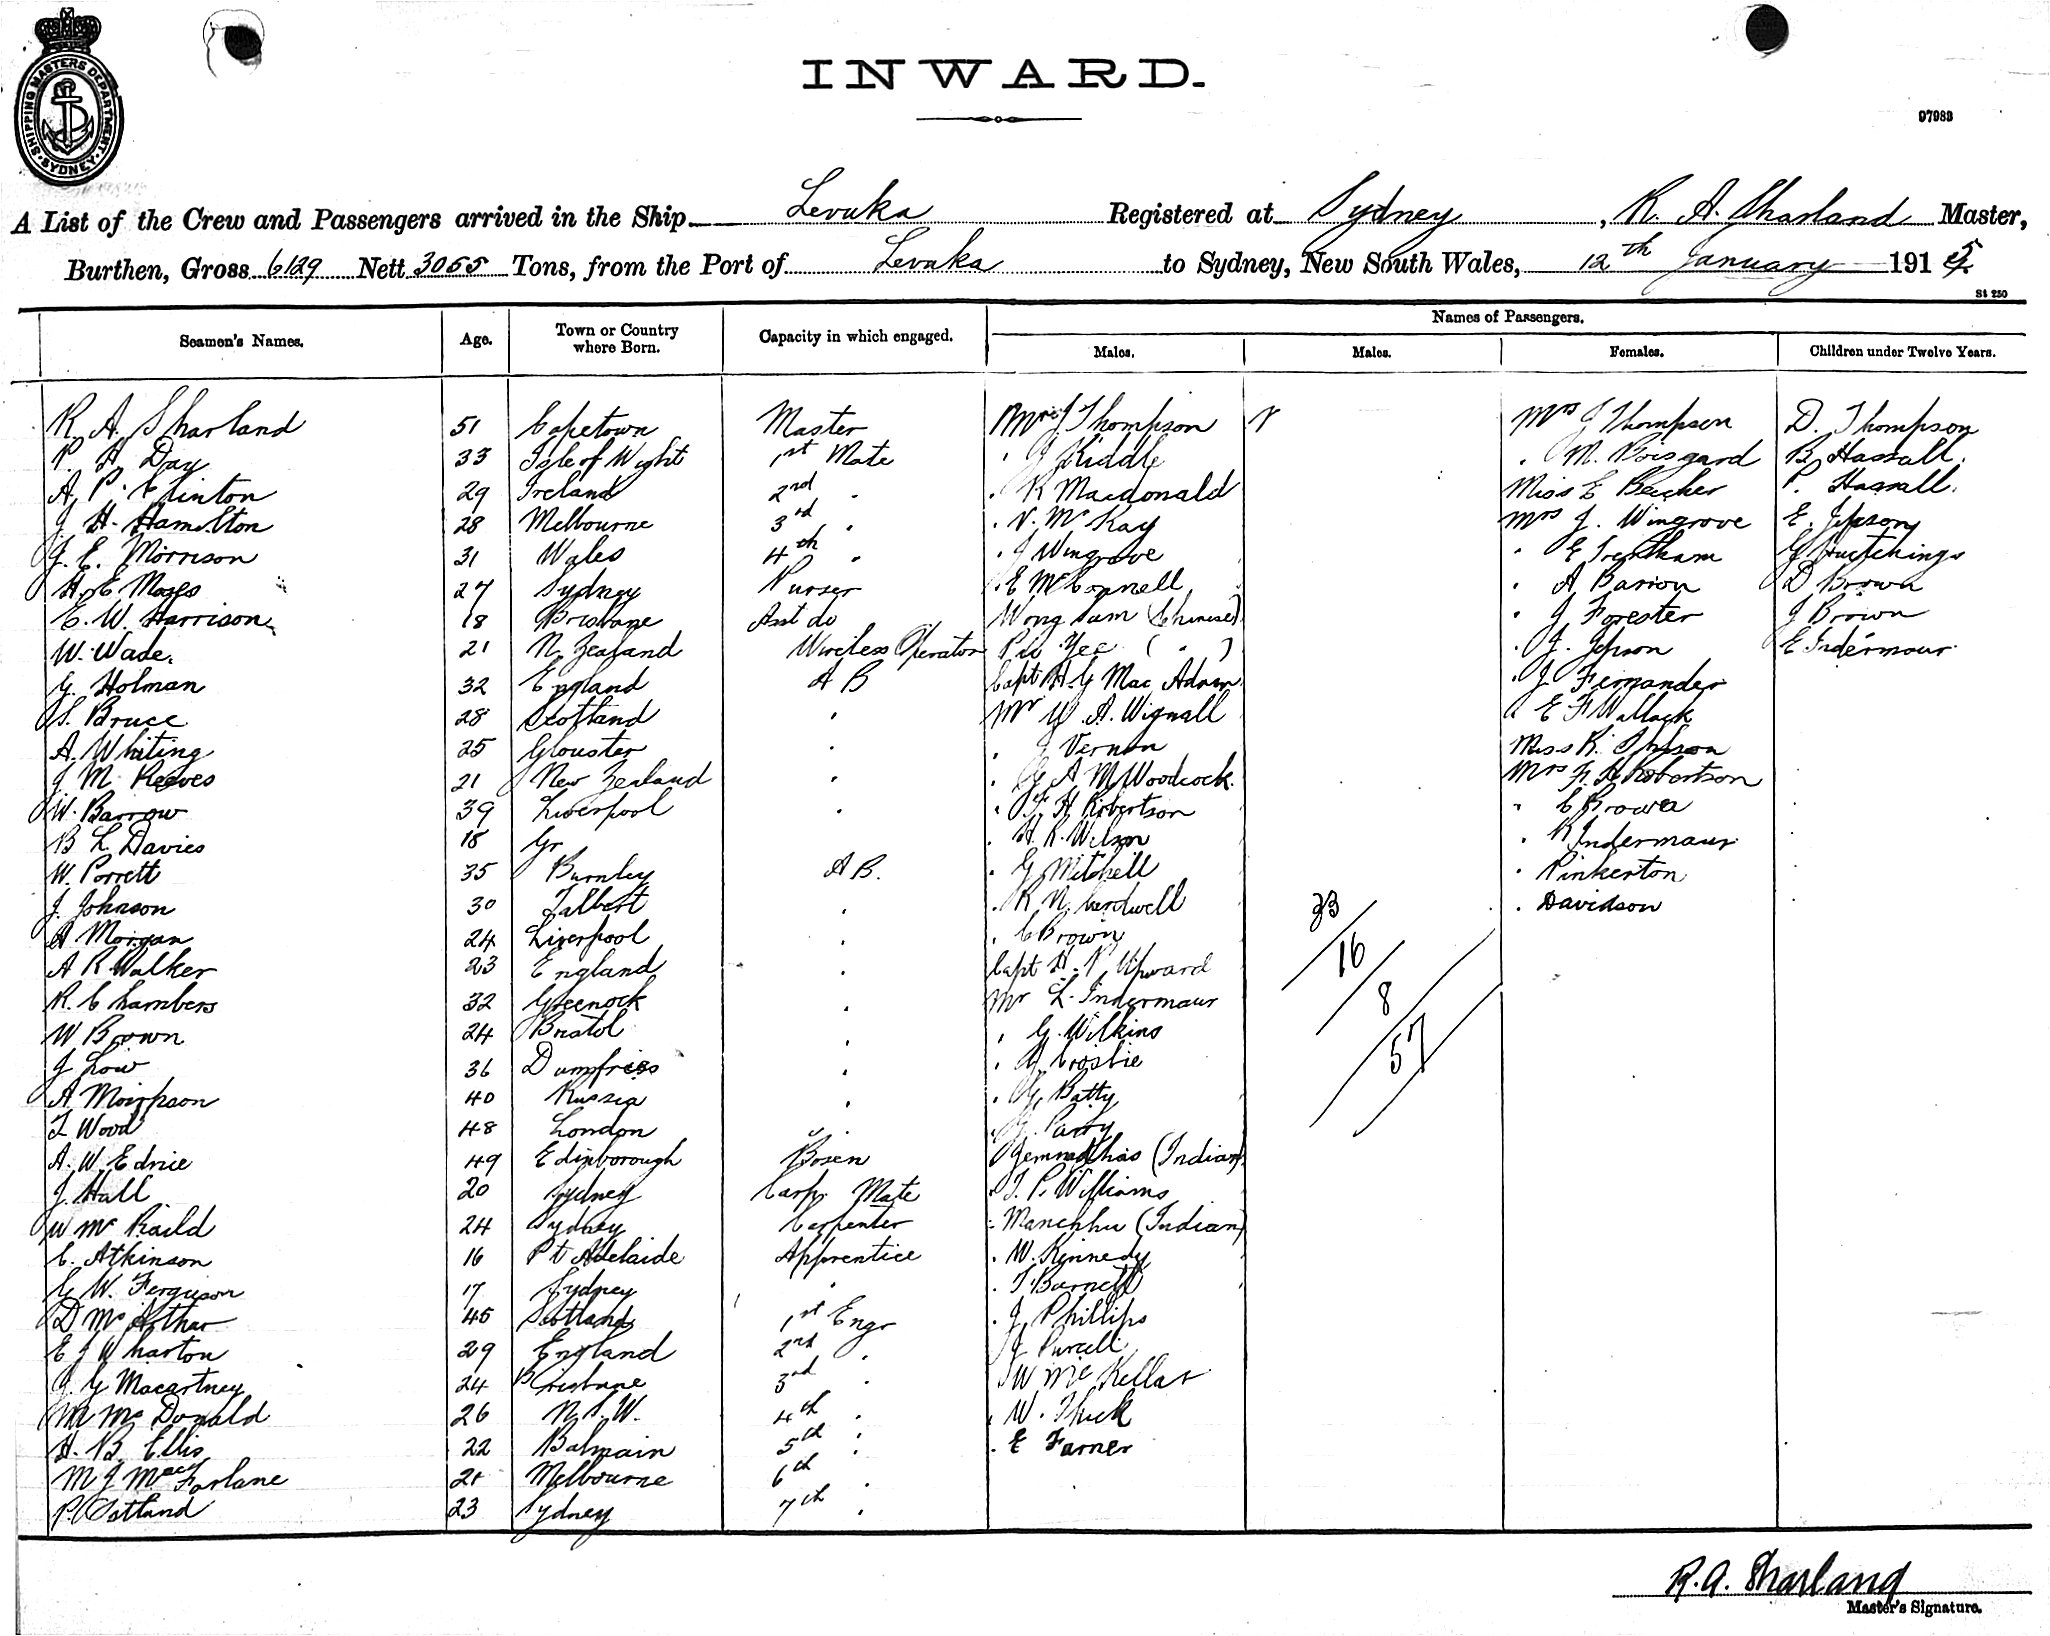 SHIPPING MASTERS DEPARTMENT SYDNEY
INWARD.
97983
A List of the Crew and Passengers arrived in the Ship Levuka Registered at Sydney, R. A. Sharland Master,
Burthen, Gross 6129 Nett 3055 Tons, from the Port of Levuka to Sydney, New South Wales, 12th January 1915
St 250
Seamen's Names. Age. Town or Country where Born. Capacity in which engaged. Names of Passengers.
Males. Males. Females. Children under Twelve Years.
R. A. Sharland 51 Capetown Master Mr J Thompson Mrs J Thompson D. Thompson
P. H Day 33 Isle of Wight 1st Mate " J Kiddle " M. Boisgard B Hassall.
A. P. Clinton 29 Ireland 2nd " " R Macdonald Miss E Becher P. Hassall.
J. H. Hamilton 28 Melbourne 3rd " " N. McKay Mrs J. Wingrove E. Jepson
J. E. Morrison 31 Wales 4th " " J Wingrove " E Trentham G Hutchings
H. E Moses 27 Sydney Purser " E McConnell " A Barron D Brown
E. W. Harrison 18 Brisbane Asst do Wong Sam (Chinese) " J Forester J Brown
W. Wade. 21 N. Zealand Wireless Operator Yee ( " ) " J. Jepson E Indermaur
G. Holman 32 England A B Capt H. G Mac Adam " J Fernander
S. Bruce 28 Scotland " Mr W. A. Wignall " E F Wallack
A. Whiting 25 Glouster " " J Vernon Miss K.
J M Reeves 21 New Zealand " " G A M Woodcock. Mrs F. H Robertson
W. Barrow 39 Liverpool " " F. H Robertson " C Brown
B L Davies 18 Gr " H. R. Wilson " K Indermaur
W. Porrett 35 Burnley A B. " G Mitchell " Pinkerton
J. Johnson 30 Talbert " " R N. Cardwell 33 " Davidson
A Morgan 24 Liverpool " " C Brown 16
A R Walker 23 England " Capt H. N Upward 8
R. Chambers 32 Greenock " Mr L. Indermaur
W Brown 24 Bristol " " G. Wilkins
J Low 36 Dumfries " " Crosbie 57
A 40 Russia " " G. Batty
T Wood 48 London " " Parry
A. W. Ednie 49 Edinborough Bosen (Indian)
J. Hall 20 Sydney Carp. Mate " T. P. Williams
W Mc Raild 24 Sydney Carpenter " Manchhu (Indian)
C. Atkinson 16 Pt Adelaide Apprentice " W. Kennedy
G W. Ferguson 17 Sydney " " T Barnett
D Mc Arthur 45 Scotland 1st Engr " J Phillips
E J Wharton 29 England 2nd " J Purcell
J. G Macartney 24 Brisbane 3rd " W Mc Kellar
M Mc Donald 26 N. S. W. 4th " " W. Thick
H. B. Ellis 22 Balmain 5th " " E Farner
M J MacFarlane 21 Melbourne 6th "
P. 23 Sydney 7th "
R. A. Sharland
Master's Signature.